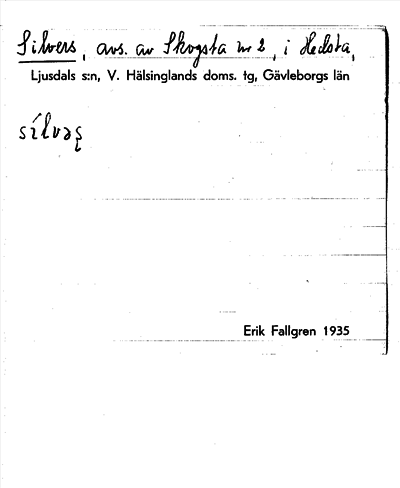 Silvers, avs. av Skogsta nr 2, i Hedsta,
Ljusdals s:n, V. Hälsinglands doms. tg, Gävleborgs län
sílvəʂ
Erik Fallgren 1935